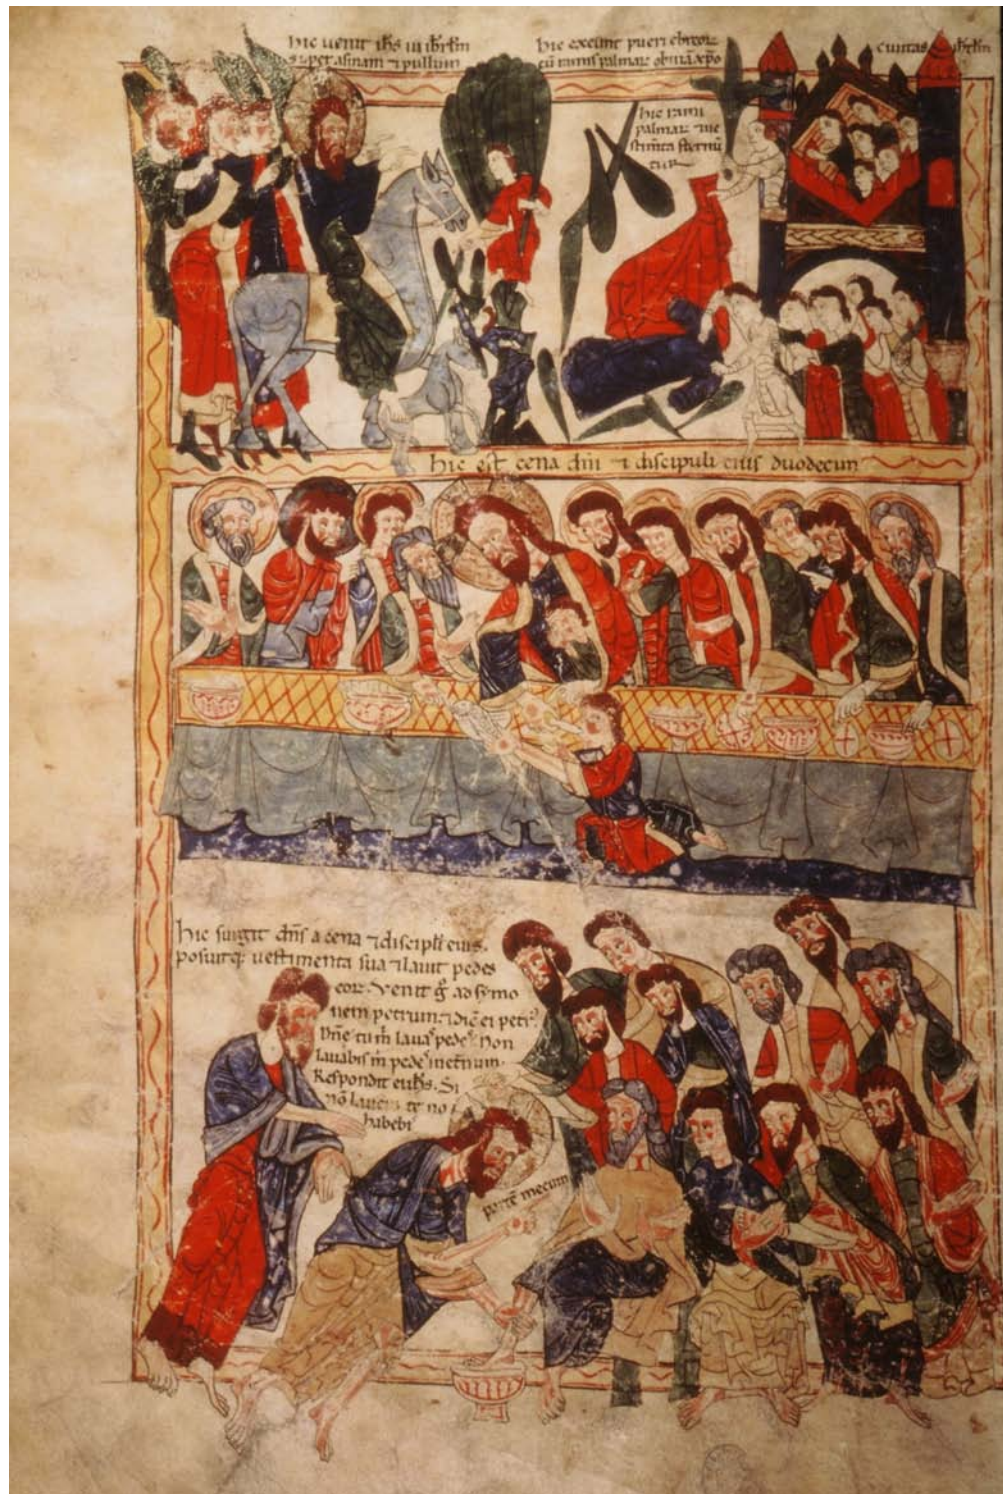 hic uenit ihs in ihrlm
super asinam ⁊ pullum
hic exeunt pueri ebreor
cū ramis palmar obuiā xp̄o
ciuitas ihrlm
hic rami
palmar ⁊ ue
stimta sternū
tur
hic est cena dn̄i ⁊ discipuli eius duodecim
hic surgit dn̄s a cena ⁊ discipli eius.
posuitq; uestimenta sua ⁊ lauit pedes
eor. Venit g̊ ad symo
nem petrum. ⁊ dic̄ ei petr᾽.
Dn̄e tu m̄ lauas pedes. Non
lauabis m̄ pedes inet̄num.
Respondit ei ih̄s. Si
nō lauero te nō
habebis
partē mecum